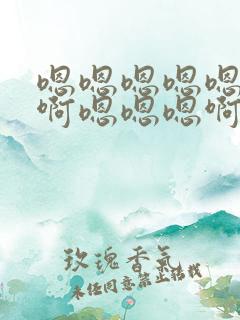 嗯嗯嗯嗯嗯
啊嗯嗯嗯啊
玫瑰香氣
未经同意禁止转载